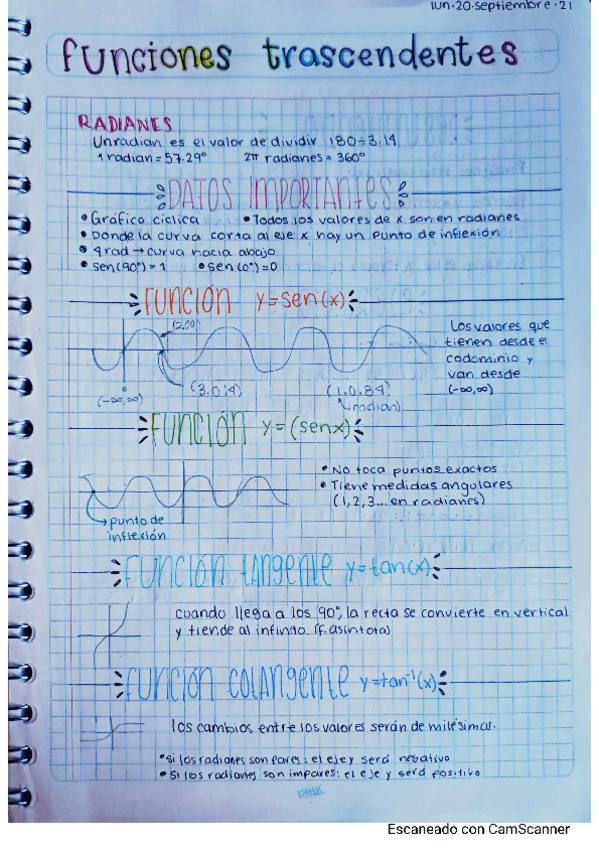 lun·20·septiembre·21
funciones trascendentes
RADIANES
Un radian es el valor de dividir 180÷3.14
1 radian = 57.29° 2π radianes = 360°
DATOS IMPORTANTES
• Gráfico cíclica • Todos los valores de x son en radianes
• Donde la curva corta al eje x hay un punto de inflexión
• 4 rad → curva hacia abajo
• sen(90°) = 1 • sen(0°) = 0
FUNCIÓN y=sen(x)
Los valores que
tienen desde el
codominio y
van desde
(-∞,∞)
(-∞,∞) (3.0.14) (1.0.84)
radian
FUNCIÓN y=(senx)
• No toca puntos exactos
• Tiene medidas angulares
(1,2,3... en radianes)
punto de
inflexión
FUNCIÓN tANgENtE y=tan(x)
cuando llega a los 90°, la recta se convierte en vertical
y tiende al infinito. (f. asintota)
FUNCIÓN COtANgENtE y=tan⁻¹(x)
los cambios entre los valores serán de milésimas.
• Si los radianes son pares: el eje y será negativo
• Si los radianes son impares: el eje y será positivo
Escaneado con CamScanner